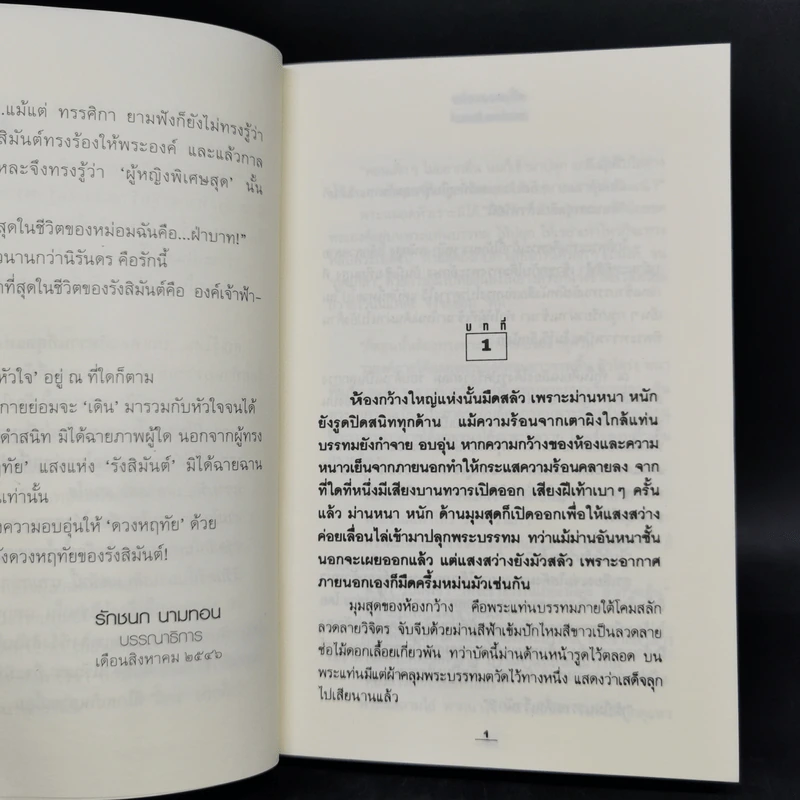 ...แม้แต่ ทรรศิกา ยามฟังก็ยังไม่ทรงรู้ว่า
สิมันต์ทรงร้องให้พระองค์ และแล้วกาล
หละจึงทรงรู้ว่า 'ผู้หญิงพิเศษสุด' นั้น
สุดในชีวิตของหม่อมฉันคือ...ฝ่าบาท!"
นานกว่านิรันดร คือรักนี้
าที่สุดในชีวิตของรังสิมันต์คือ องค์เจ้าฟ้า-
หัวใจ' อยู่ ณ ที่ใดก็ตาม
กายย่อมจะ 'เดิน' มารวมกับหัวใจจนได้
ดำสนิท มิได้ฉายภาพผู้ใด นอกจากผู้ทรง
ฤทัย' แสงแห่ง 'รังสิมันต์' มิได้ฉายฉาน
แท่านั้น
งความอบอุ่นให้ 'ดวงหฤทัย' ด้วย
ังดวงหฤทัยของรังสิมันต์!
รักชนก นามทอน
บรรณาธิการ
เดือนสิงหาคม ๒๕๔๖
บทที่
1
ห้องกว้างใหญ่แห่งนั้นมืดสลัว เพราะม่านหนา หนัก
ยังรูดปิดสนิททุกด้าน แม้ความร้อนจากเตาผิงใกล้แท่น
บรรทมยังกำจาย อบอุ่น หากความกว้างของห้องและความ
หนาวเย็นจากภายนอกทำให้กระแสความร้อนคลายลง จาก
ที่ใดที่หนึ่งมีเสียงบานทวารเปิดออก เสียงฝีเท้าเบาๆ ครั้น
แล้ว ม่านหนา หนัก ด้านมุมสุดก็เปิดออกเพื่อให้แสงสว่าง
ค่อยเลื่อนไล่เข้ามาปลุกพระบรรทม ทว่าแม้ม่านอันหนาชั้น
นอกจะเผยออกแล้ว แต่แสงสว่างยังมัวสลัว เพราะอากาศ
ภายนอกเองก็มืดครึ้มหม่นมัวเช่นกัน
มุมสุดของห้องกว้าง คือพระแท่นบรรทมภายใต้โคมสลัก
ลวดลายวิจิตร จับจีบด้วยม่านสีฟ้าเข้มปักไหมสีขาวเป็นลวดลาย
ช่อไม้ดอกเลื้อยเกี่ยวพัน ทว่าบัดนี้ม่านด้านหน้ารูดไว้ตลอด บน
พระแท่นมีแต่ผ้าคลุมพระบรรทมตวัดไว้ทางหนึ่ง แสดงว่าเสด็จลุก
ไปเสียนานแล้ว
1